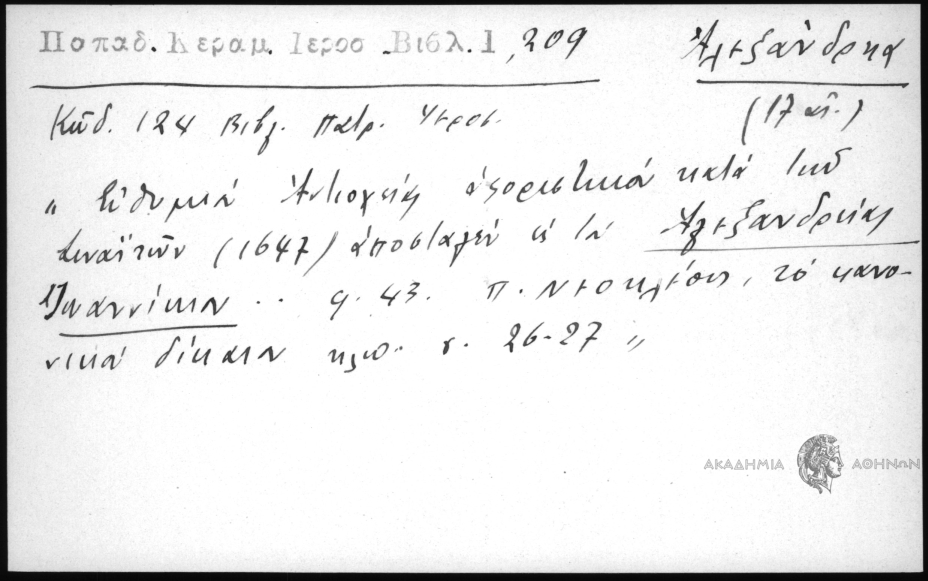 Παπαδ. Κεραμ. Ιεροσ. Βιβλ. 1, 209
Ἀλεξάνδρεια
(17 αἰ.)
Κῶδ. 124 Βιβλ. Πατρ. Ἱεροσ.
" Εὐθυμίου Ἀντιοχείας ἀφοριστικὸν κατὰ τῶν
Σιναϊτῶν (1647) ἀποσταλὲν εἰς τὸν Ἀλεξανδρείας
Ἰωαννίκιον . . φ. 43. Π. Νεοκλέους, τὸ κανο-
νικὸν δίκαιον κλπ. σ. 26-27 "
ΑΚΑΔΗΜΙΑ ΑΘΗΝΩΝ